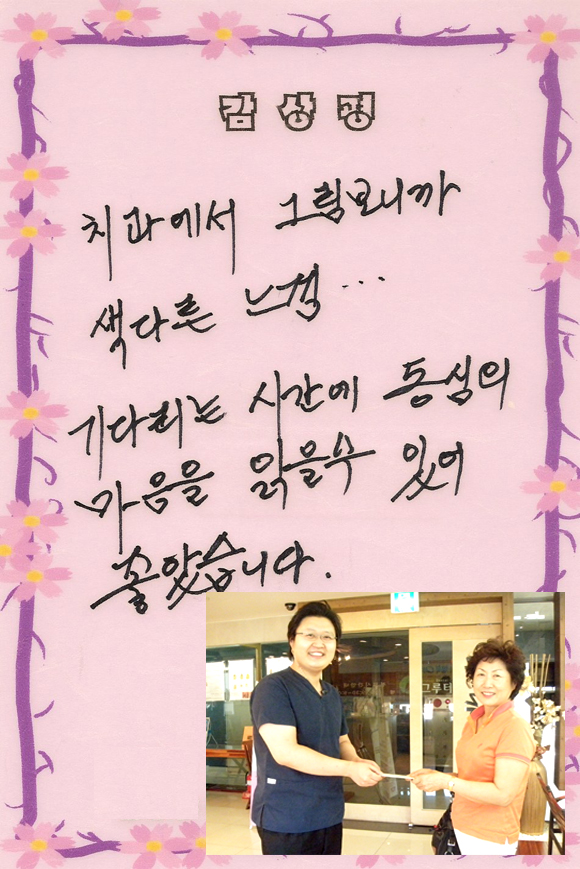 김상평
치과에서 그림보니까
색다른 느낌...
기다리는 시간에 동심의
마음을 읽을수 있어
좋았습니다.
그루터